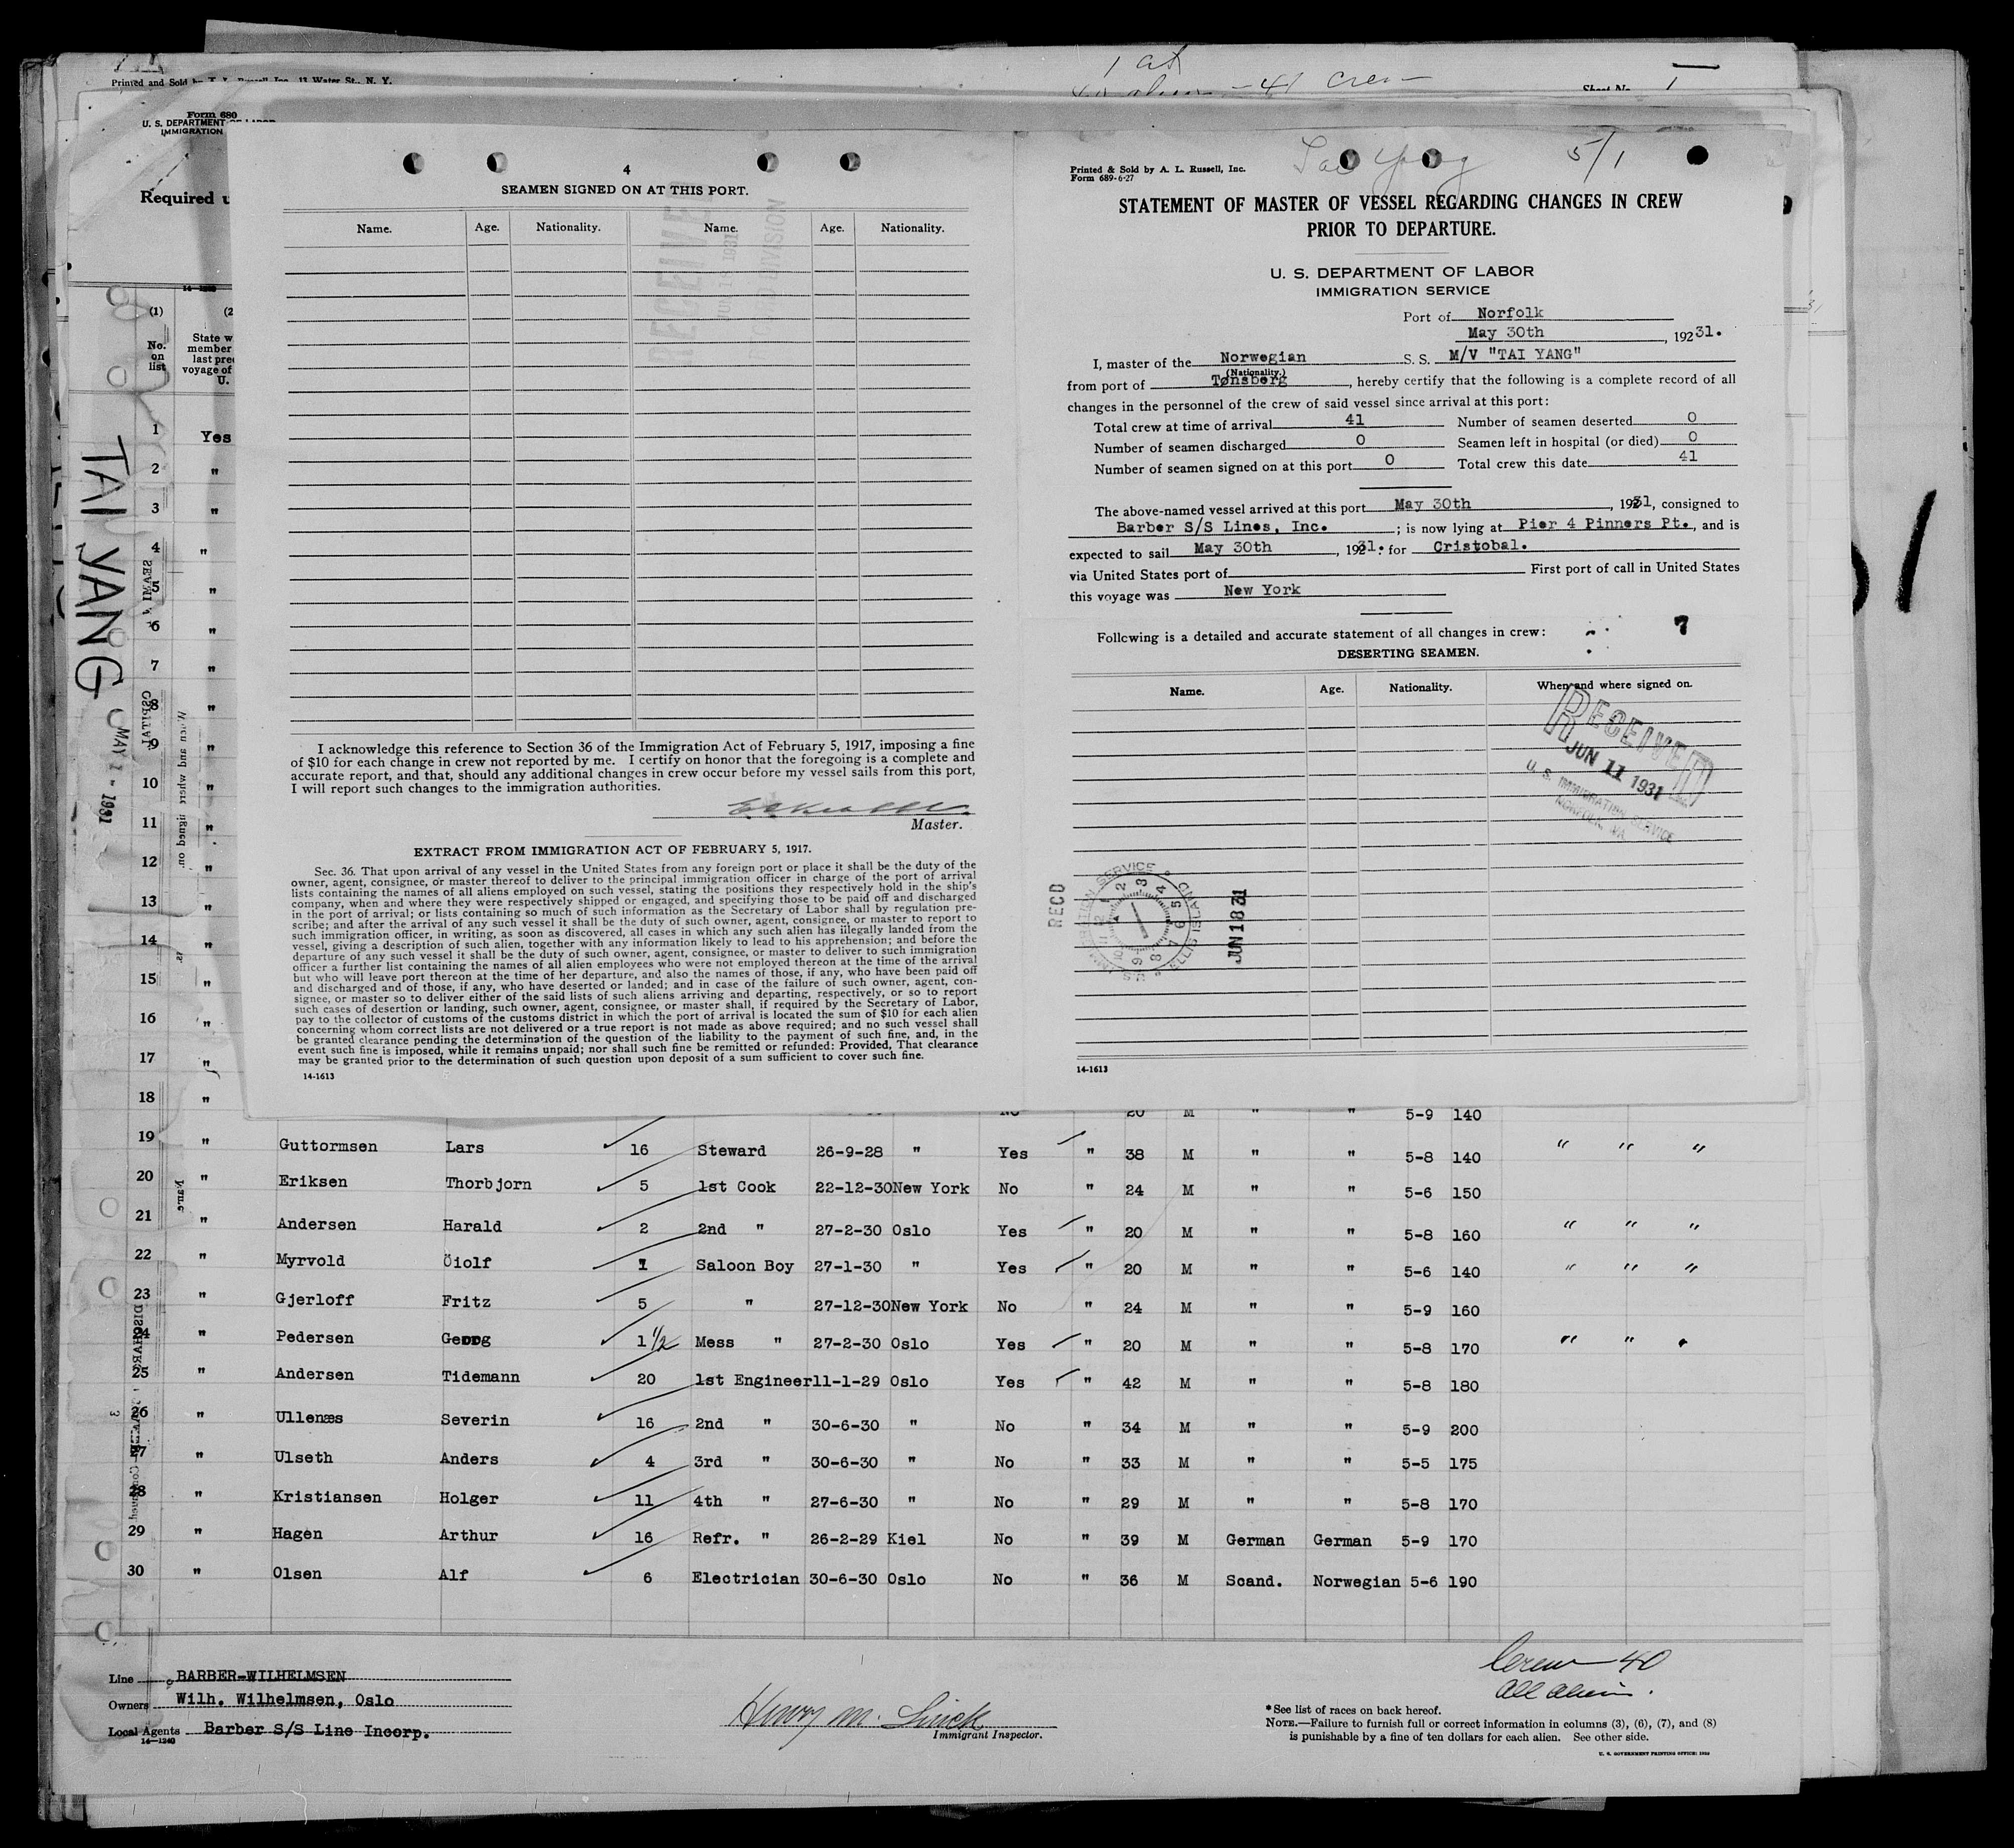 Printed and Sold by T. L. Russell Inc. 13 Water St., N. Y.
1 at
41 crew
Sheet No. 1
Form 680
U. S. DEPARTMENT OF LABOR
IMMIGRATION
Required u
4
SEAMEN SIGNED ON AT THIS PORT.
Name. Age. Nationality. Name. Age. Nationality.
RECEIVED
JUN 18 1931
DIVISION
I acknowledge this reference to Section 36 of the Immigration Act of February 5, 1917, imposing a fine
of $10 for each change in crew not reported by me. I certify on honor that the foregoing is a complete and
accurate report, and that, should any additional changes in crew occur before my vessel sails from this port,
I will report such changes to the immigration authorities.
Master.
EXTRACT FROM IMMIGRATION ACT OF FEBRUARY 5, 1917.
Sec. 36. That upon arrival of any vessel in the United States from any foreign port or place it shall be the duty of the
owner, agent, consignee, or master thereof to deliver to the principal immigration officer in charge of the port of arrival
lists containing the names of all aliens employed on such vessel, stating the positions they respectively hold in the ship's
company, when and where they were respectively shipped or engaged, and specifying those to be paid off and discharged
in the port of arrival; or lists containing so much of such information as the Secretary of Labor shall by regulation pre-
scribe; and after the arrival of any such vessel it shall be the duty of such owner, agent, consignee, or master to report to
such immigration officer, in writing, as soon as discovered, all cases in which any such alien has illegally landed from the
vessel, giving a description of such alien, together with any information likely to lead to his apprehension; and before the
departure of any such vessel it shall be the duty of such owner, agent, consignee, or master to deliver to such immigration
officer a further list containing the names of all alien employees who were not employed thereon at the time of the arrival
but who will leave port thereon at the time of her departure, and also the names of those, if any, who have been paid off
and discharged and of those, if any, who have deserted or landed; and in case of the failure of such owner, agent, con-
signee, or master so to deliver either of the said lists of such aliens arriving and departing, respectively, or so to report
such cases of desertion or landing, such owner, agent, consignee, or master shall, if required by the Secretary of Labor,
pay to the collector of customs of the customs district in which the port of arrival is located the sum of $10 for each alien
concerning whom correct lists are not delivered or a true report is not made as above required; and no such vessel shall
be granted clearance pending the determination of the question of the liability to the payment of such fine, and, in the
event such fine is imposed, while it remains unpaid; nor shall such fine be remitted or refunded: Provided, That clearance
may be granted prior to the determination of such question upon deposit of a sum sufficient to cover such fine.
14-1613
Tai Yang 5/1
Printed & Sold by A. L. Russell, Inc.
Form 689-6-27
STATEMENT OF MASTER OF VESSEL REGARDING CHANGES IN CREW
PRIOR TO DEPARTURE.
U. S. DEPARTMENT OF LABOR
IMMIGRATION SERVICE
Port of Norfolk
May 30th, 192 31.
I, master of the Norwegian S. S. M/V "TAI YANG"
(Nationality.)
from port of Tønsberg, hereby certify that the following is a complete record of all
changes in the personnel of the crew of said vessel since arrival at this port:
Total crew at time of arrival 41 Number of seamen deserted 0
Number of seamen discharged 0 Seamen left in hospital (or died) 0
Number of seamen signed on at this port 0 Total crew this date 41
The above-named vessel arrived at this port May 30th, 1931, consigned to
Barber S/S Lines, Inc. ; is now lying at Pier 4 Pinners Pt., and is
expected to sail May 30th, 19231. for Cristobal.
via United States port of First port of call in United States
this voyage was New York
Following is a detailed and accurate statement of all changes in crew: 7
DESERTING SEAMEN.
Name. Age. Nationality. When and where signed on.
RECEIVED
JUN 11 1931
U. S. IMMIGRATION SERVICE
NORFOLK, VA.
RECD
ELLIS ISLAND
JUN 18 31
14-1613
TAI YANG
MAY 1 - 1931
14-1240
(1) (2
No. on list
State w
member
last pre
voyage of
U.
1 Yes
2 "
3 "
4 "
5 "
6 "
7 "
8 "
9 "
10 "
11 "
12 "
13 "
14 "
15 "
16 "
17 "
18 " No 20 M " " 5-9 140
19 " Guttormsen Lars 16 Steward 26-9-28 " Yes " 38 M " " 5-8 140 " " "
20 " Eriksen Thorbjorn 5 1st Cook 22-12-30 New York No " 24 M " " 5-6 150
21 " Andersen Harald 2 2nd " 27-2-30 Oslo Yes " 20 M " " 5-8 160 " " "
22 " Myrvold Öiolf 1 Saloon Boy 27-1-30 " Yes " 20 M " " 5-6 140 " " "
23 " Gjerloff Fritz 5 " 27-12-30 New York No " 24 M " " 5-9 160
24 " Pedersen Georg 1 1/2 Mess " 27-2-30 Oslo Yes " 20 M " " 5-8 170 " " "
25 " Andersen Tidemann 20 1st Engineer 11-1-29 Oslo Yes " 42 M " " 5-8 180
26 " Ullenæs Severin 16 2nd " 30-6-30 " No " 34 M " " 5-9 200
27 " Ulseth Anders 4 3rd " 30-6-30 " No " 33 M " " 5-5 175
28 " Kristiansen Holger 11 4th " 27-6-30 " No " 29 M " " 5-8 170
29 " Hagen Arthur 16 Refr. " 26-2-29 Kiel No " 39 M German German 5-9 170
30 " Olsen Alf 6 Electrician 30-6-30 Oslo No " 36 M Scand. Norwegian 5-6 190
Crew 40
All alien.
Line BARBER-WILHELMSEN
Owners Wilh. Wilhelmsen, Oslo
Local Agents Barber S/S Line Incorp.
14-1240
Henry M.
Immigrant Inspector.
* See list of races on back hereof.
NOTE.—Failure to furnish full or correct information in columns (3), (6), (7), and (8)
is punishable by a fine of ten dollars for each alien. See other side.
U. S. GOVERNMENT PRINTING OFFICE